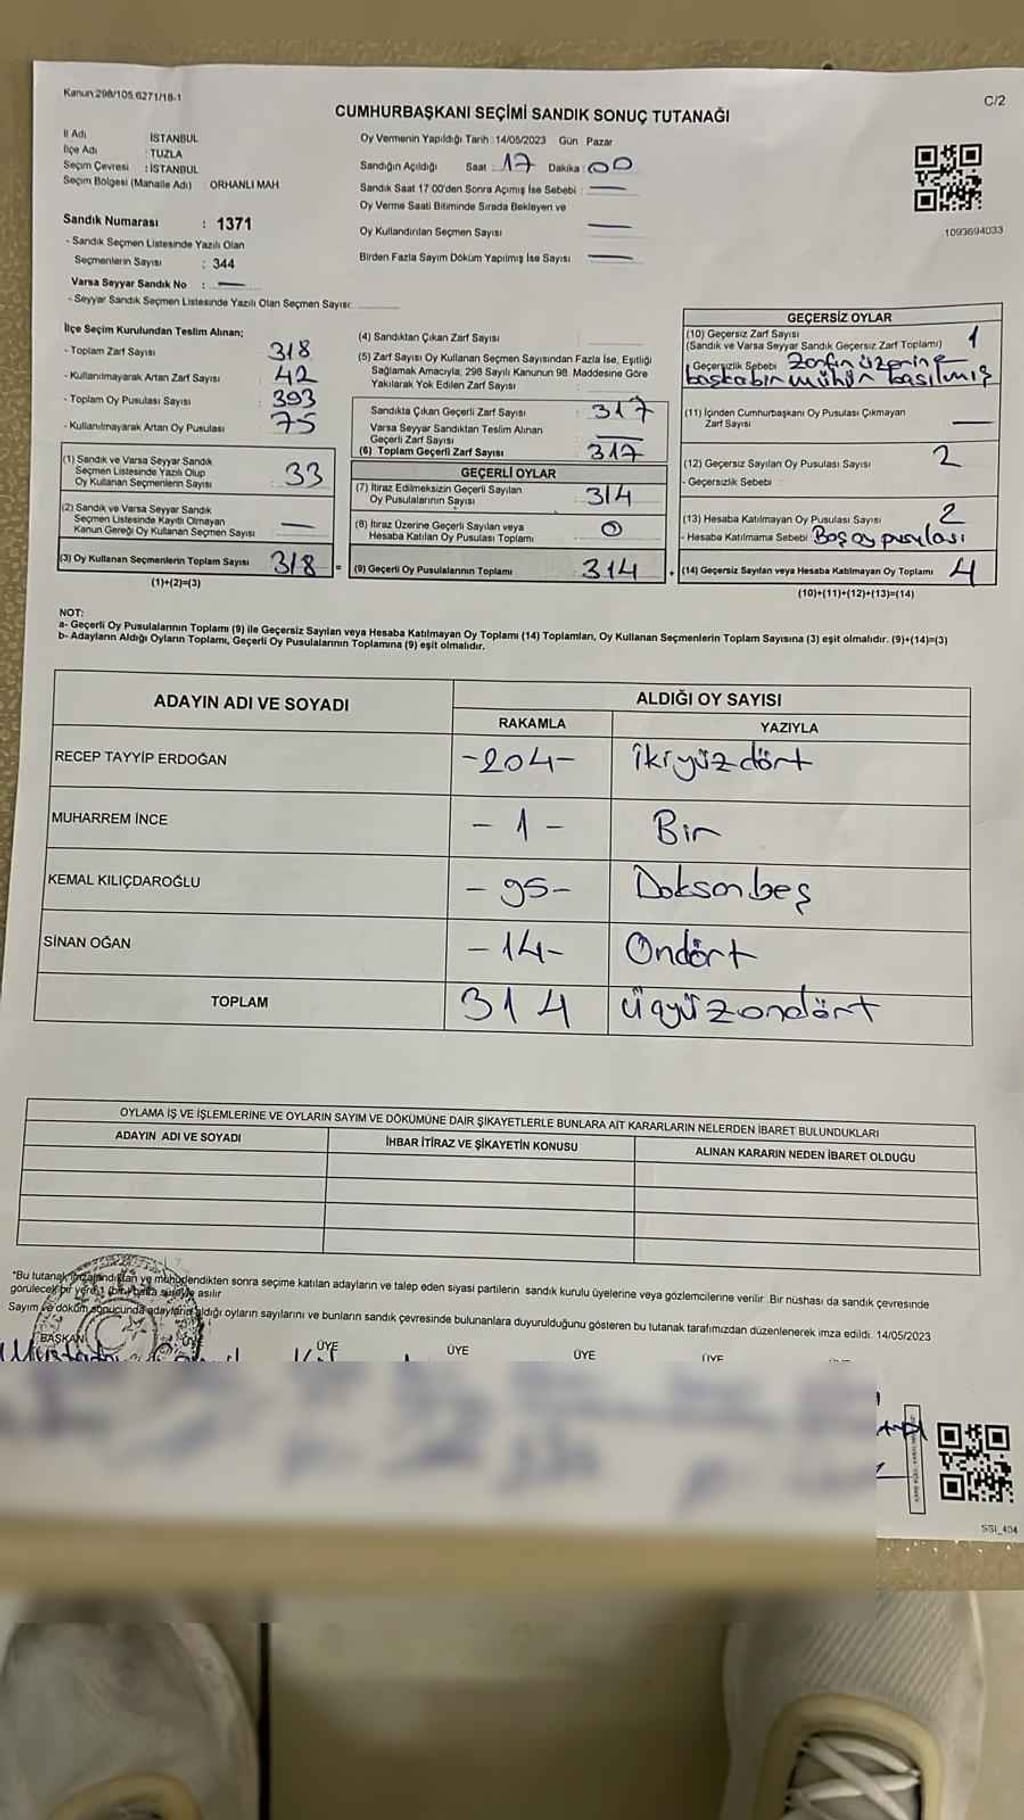 Kanun 298/105 6271/18-1
C/2
CUMHURBAŞKANI SEÇİMİ SANDIK SONUÇ TUTANAĞI
İl Adı : İSTANBUL
İlçe Adı : TUZLA
Seçim Çevresi : İSTANBUL
Seçim Bölgesi (Mahalle Adı) : ORHANLI MAH
Sandık Numarası : 1371
- Sandık Seçmen Listesinde Yazılı Olan
Seçmenlerin Sayısı : 344
Varsa Seyyar Sandık No : —
- Seyyar Sandık Seçmen Listesinde Yazılı Olan Seçmen Sayısı:
Oy Vermenin Yapıldığı Tarih : 14/05/2023 Gün Pazar
Sandığın Açıldığı Saat : 17 Dakika : 00
Sandık Saat 17:00'den Sonra Açımış İse Sebebi : —
Oy Verme Saati Bitiminde Sırada Bekleyen ve
Oy Kullandırılan Seçmen Sayısı —
Birden Fazla Sayım Döküm Yapılmış İse Sayısı —
1093694033
İlçe Seçim Kurulundan Teslim Alınan;
- Toplam Zarf Sayısı 318
- Kullanılmayarak Artan Zarf Sayısı 42
- Toplam Oy Pusulası Sayısı 393
- Kullanılmayarak Artan Oy Pusulası 75
(1) Sandık ve Varsa Seyyar Sandık
Seçmen Listesinde Yazılı Olup
Oy Kullanan Seçmenlerin Sayısı 33
(2) Sandık ve Varsa Seyyar Sandık
Seçmen Listesinde Kayıtlı Olmayan
Kanun Gereği Oy Kullanan Seçmen Sayısı —
(3) Oy Kullanan Seçmenlerin Toplam Sayısı 318 =
(1)+(2)=(3)
(4) Sandıktan Çıkan Zarf Sayısı
(5) Zarf Sayısı Oy Kullanan Seçmen Sayısından Fazla İse, Eşitliği
Sağlamak Amacıyla, 298 Sayılı Kanunun 98. Maddesine Göre
Yakılarak Yok Edilen Zarf Sayısı :
Sandıkta Çıkan Geçerli Zarf Sayısı 317
Varsa Seyyar Sandıktan Teslim Alınan
Geçerli Zarf Sayısı —
(6) Toplam Geçerli Zarf Sayısı 317
GEÇERLİ OYLAR
(7) İtiraz Edilmeksizin Geçerli Sayılan
Oy Pusulalarının Sayısı 314
(8) İtiraz Üzerine Geçerli Sayılan veya
Hesaba Katılan Oy Pusulası Toplamı 0
(9) Geçerli Oy Pusulalarının Toplamı 314 +
GEÇERSİZ OYLAR
(10) Geçersiz Zarf Sayısı 1
(Sandık ve Varsa Seyyar Sandık Geçersiz Zarf Toplamı)
- Geçersizlik Sebebi Zarfın üzerine
başkabir mühür basılmış
(11) İçinden Cumhurbaşkanı Oy Pusulası Çıkmayan
Zarf Sayısı —
(12) Geçersiz Sayılan Oy Pusulası Sayısı 2
- Geçersizlik Sebebi
(13) Hesaba Katılmayan Oy Pusulası Sayısı 2
- Hesaba Katılmama Sebebi Boş oy pusulası
(14) Geçersiz Sayılan veya Hesaba Katılmayan Oy Toplamı 4
(10)+(11)+(12)+(13)=(14)
NOT:
a- Geçerli Oy Pusulalarının Toplamı (9) ile Geçersiz Sayılan veya Hesaba Katılmayan Oy Toplamı (14) Toplamları, Oy Kullanan Seçmenlerin Toplam Sayısına (3) eşit olmalıdır. (9)+(14)=(3)
b- Adayların Aldığı Oyların Toplamı, Geçerli Oy Pusulalarının Toplamına (9) eşit olmalıdır.
ADAYIN ADI VE SOYADI
ALDIĞI OY SAYISI
RAKAMLA YAZIYLA
RECEP TAYYİP ERDOĞAN -204- ikiyüzdört
MUHARREM İNCE -1- Bir
KEMAL KILIÇDAROĞLU -95- Doksanbeş
SİNAN OĞAN -14- Ondört
TOPLAM 314 üçyüzondört
OYLAMA İŞ VE İŞLEMLERİNE VE OYLARIN SAYIM VE DÖKÜMÜNE DAİR ŞİKAYETLERLE BUNLARA AİT KARARLARIN NELERDEN İBARET BULUNDUKLARI
ADAYIN ADI VE SOYADI İHBAR İTİRAZ VE ŞİKAYETİN KONUSU ALINAN KARARIN NEDEN İBARET OLDUĞU
*Bu tutanak imzalandıktan ve mühürlendikten sonra seçime katılan adayların ve talep eden siyasi partilerin sandık kurulu üyelerine veya gözlemcilerine verilir. Bir nüshası da sandık çevresinde
görülecek bir yerde 1 (bir) hafta süreyle asılır
Sayım ve döküm sonucunda adayların aldığı oyların sayılarını ve bunların sandık çevresinde bulunanlara duyurulduğunu gösteren bu tutanak tarafımızdan düzenlenerek imza edildi. 14/05/2023
BAŞKAN ÜYE ÜYE ÜYE ÜYE ÜYE
SSI_404